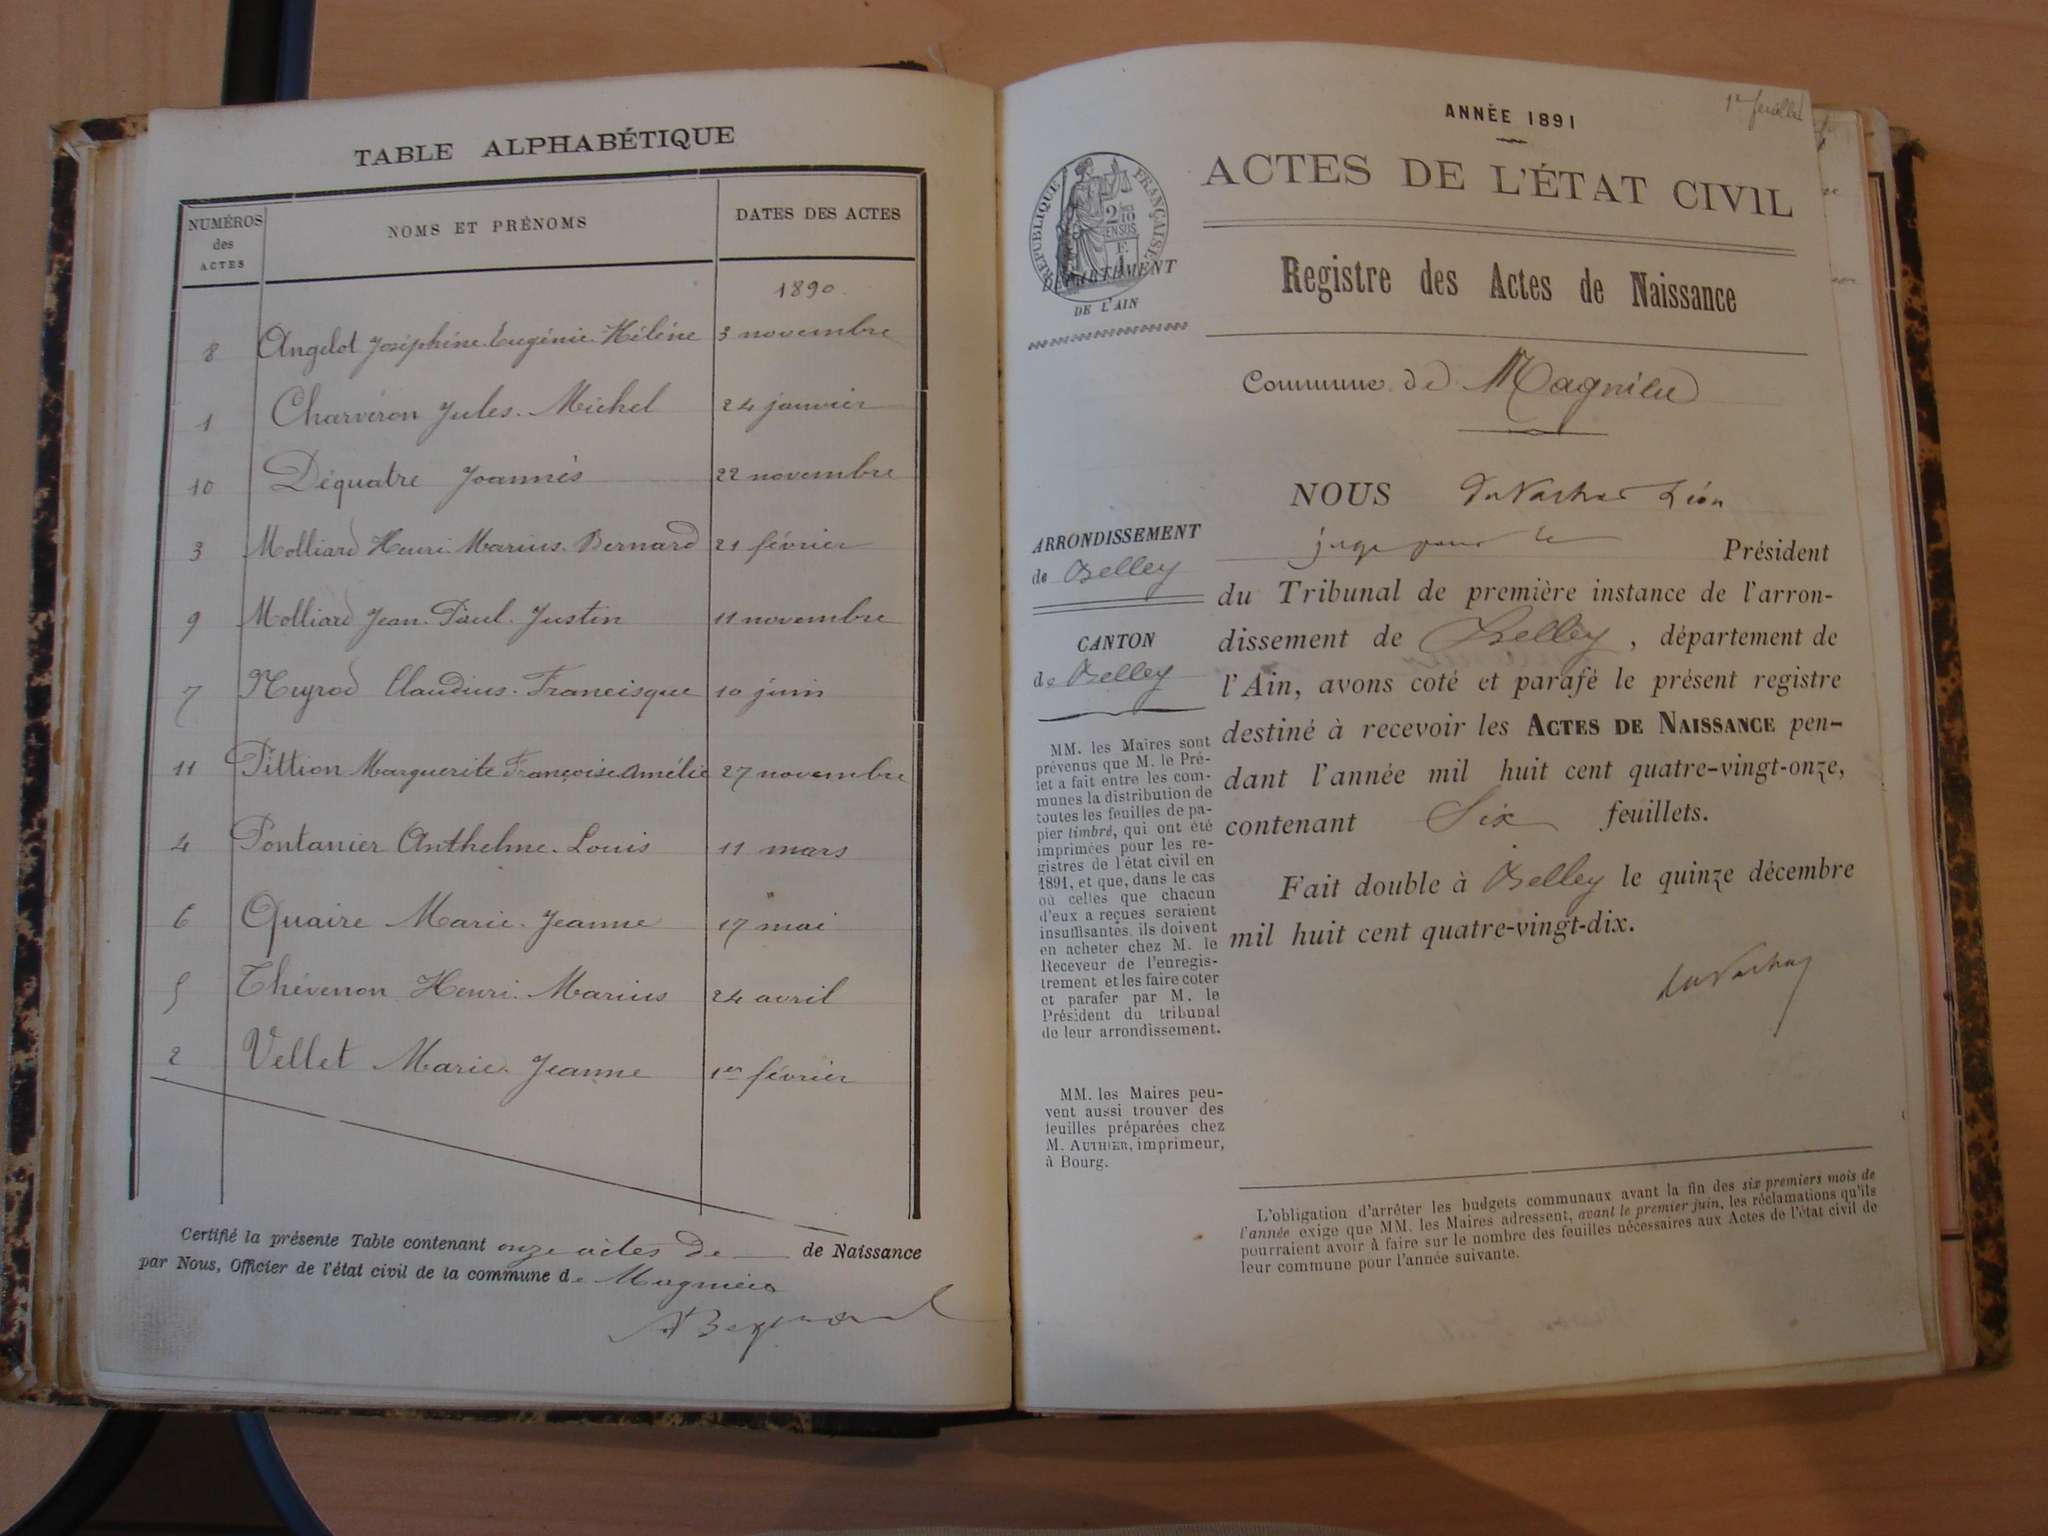 TABLE ALPHABÉTIQUE
NUMÉROS des ACTES
NOMS ET PRÉNOMS
DATES DES ACTES
1890
8 Angelot Joséphine Eugénie Hélène 3 novembre
1 Charvéron Jules Michel 24 janvier
10 Déquatre Joannès 22 novembre
3 Molliard Henri Marius Bernard 21 février
9 Molliard Jean Paul Justin 11 novembre
7 Neyrod Claudius Francisque 10 juin
11 Pittion Marguerite Françoise Amélie 27 novembre
4 Pontanier Anthelme Louis 11 mars
6 Quaire Marie Jeanne 17 mai
5 Thévenon Henri Marius 24 avril
2 Vellet Marie Jeanne 1er février
Certifié la présente Table contenant onze actes de de Naissance
par Nous, Officier de l'état civil de la commune de Magnieu
1er feuillet
ANNÉE 1891
ACTES DE L'ÉTAT CIVIL
RÉPUBLIQUE FRANÇAISE
2 10 EN SUS
DÉPARTEMENT
DE L'AIN
Registre des Actes de Naissance
Commune de Magnieu
ARRONDISSEMENT
de Belley
CANTON
de Belley
MM. les Maires sont
prévenus que M. le Pré-
fet a fait entre les com-
munes la distribution de
toutes les feuilles de pa-
pier timbré, qui ont été
imprimées pour les re-
gistres de l'état civil en
1891, et que, dans le cas
où celles que chacun
d'eux a reçues seraient
insuffisantes, ils doivent
en acheter chez M. le
Receveur de l'enregis-
trement et les faire coter
et parafer par M. le
Président du tribunal
de leur arrondissement.
MM. les Maires peu-
vent aussi trouver des
feuilles préparées chez
M. AUTHIER, imprimeur,
à Bourg.
NOUS Léon
juge pour le Président
du Tribunal de première instance de l'arron-
dissement de Belley, département de
l'Ain, avons coté et parafé le présent registre
destiné à recevoir les ACTES DE NAISSANCE pen-
dant l'année mil huit cent quatre-vingt-onze,
contenant Six feuillets.
Fait double à Belley le quinze décembre
mil huit cent quatre-vingt-dix.
L'obligation d'arrêter les budgets communaux avant la fin des six premiers mois de
l'année exige que MM. les Maires adressent, avant le premier juin, les réclamations qu'ils
pourraient avoir à faire sur le nombre des feuilles nécessaires aux Actes de l'état civil de
leur commune pour l'année suivante.